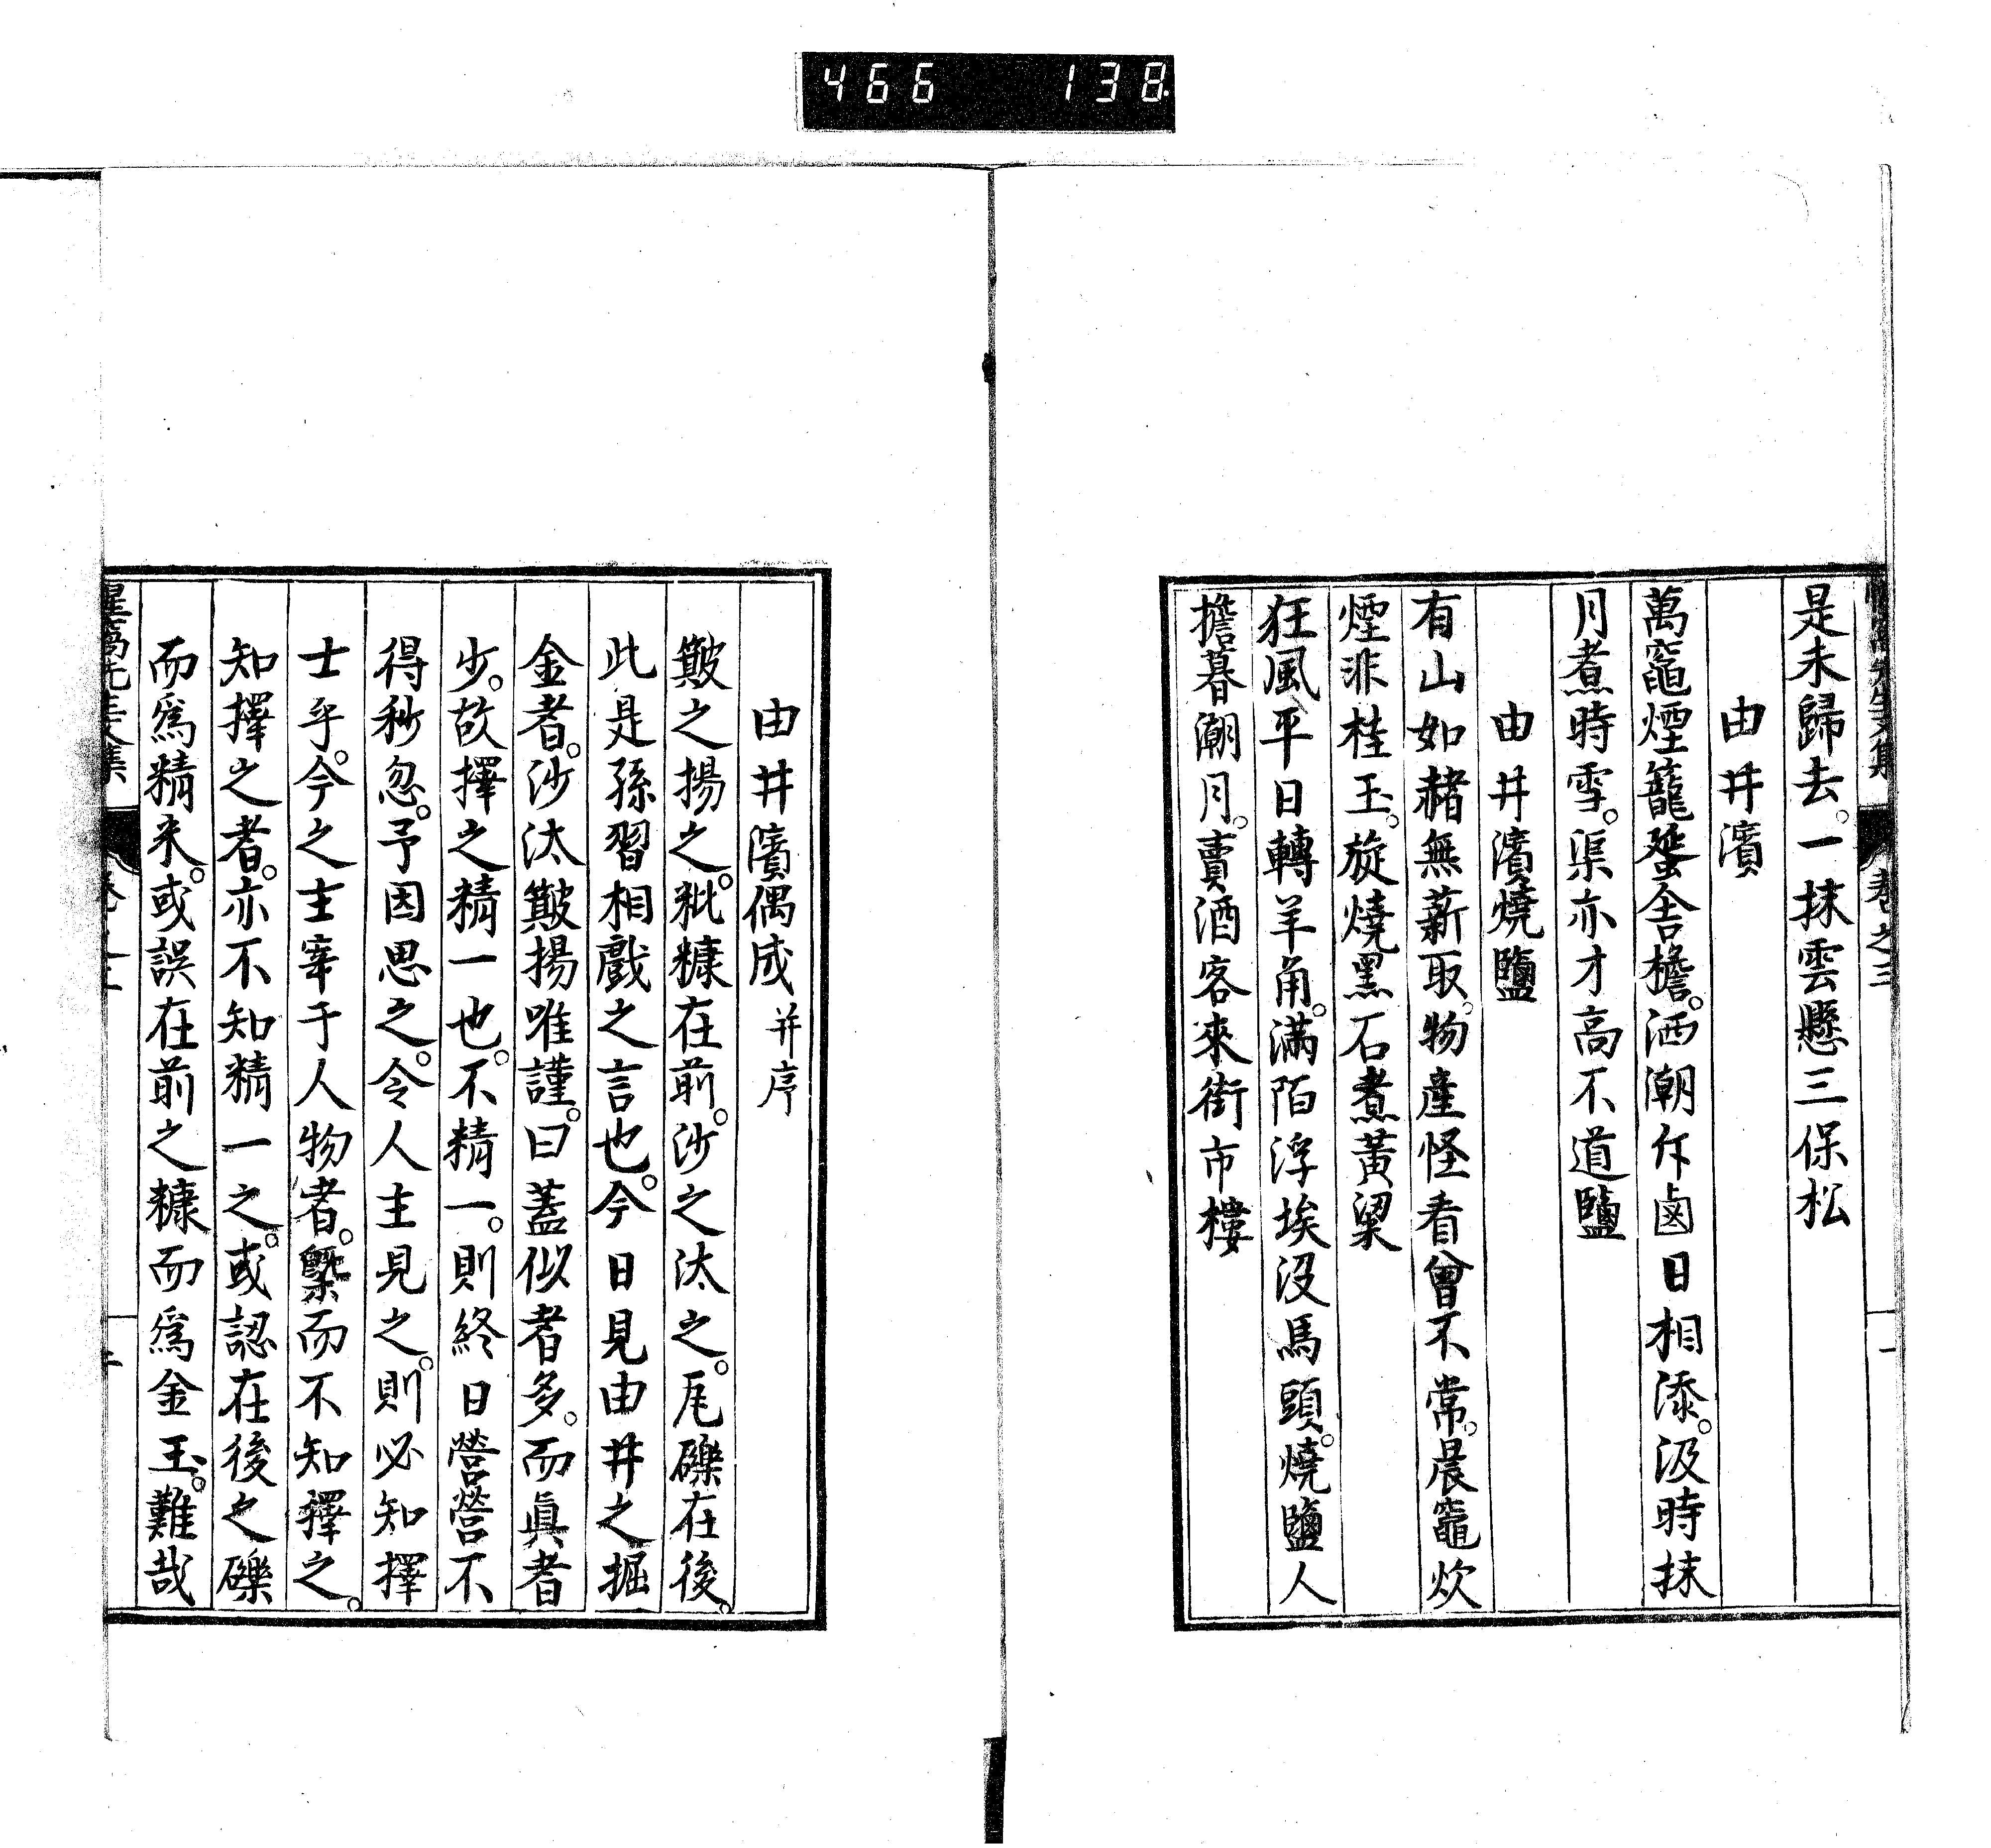 466 138
是未歸去。一抹雲懸三保松
由井濱
萬竈煙籠蜑舍檐。洒潮斥鹵日相添。汲時抹
月煮時雪。渠亦才高不道鹽
由井濱燒鹽
有山如赭無薪取。物產怪看曾不常。晨竈炊
煙非桂玉。旋燒黑石煮黃粱
狂風平日轉羊角。滿陌浮埃沒馬頭。燒鹽人
擔暮潮月。賣酒客來街市樓
由井濱偶成 并序
簸之揚之。粃糠在前。沙之汰之。瓦礫在後。
此是孫習相戲之言也。今日見由井之掘
金者。沙汰簸揚唯謹。曰蓋似者多。而眞者
少。故擇之精一也。不精一。則終日營營不
得秒忽。予因思之。令人主見之。則必知擇
士乎。今之主宰于人物者。槩而不知擇之。
知擇之者。亦不知精一之。或認在後之礫
而爲精米。或誤在前之糠而爲金玉。難哉